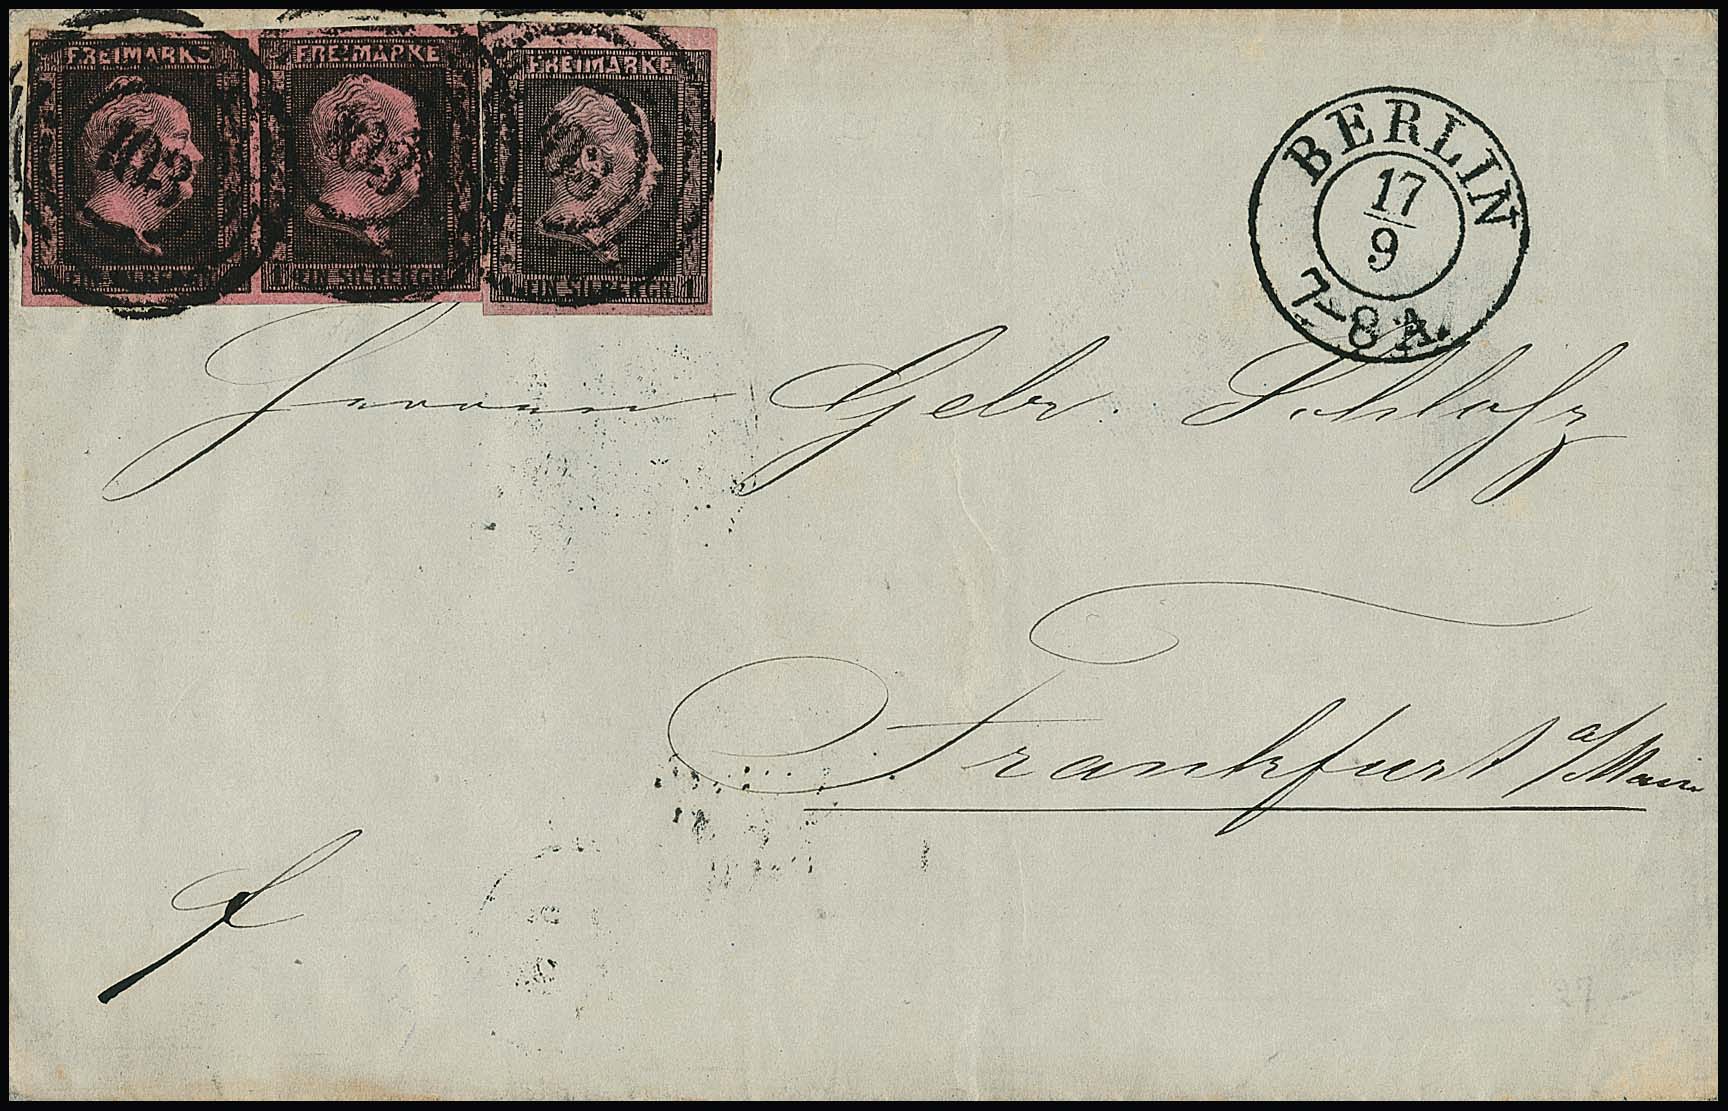 FREIMARKE FREIMARKE FREIMARKE
103
EIN SILBERGR 1 EIN SILBERGR 1 EIN SILBERGR 1
BERLIN
17
9
7-8 A.
Gebr.
Frankfurt a/Main